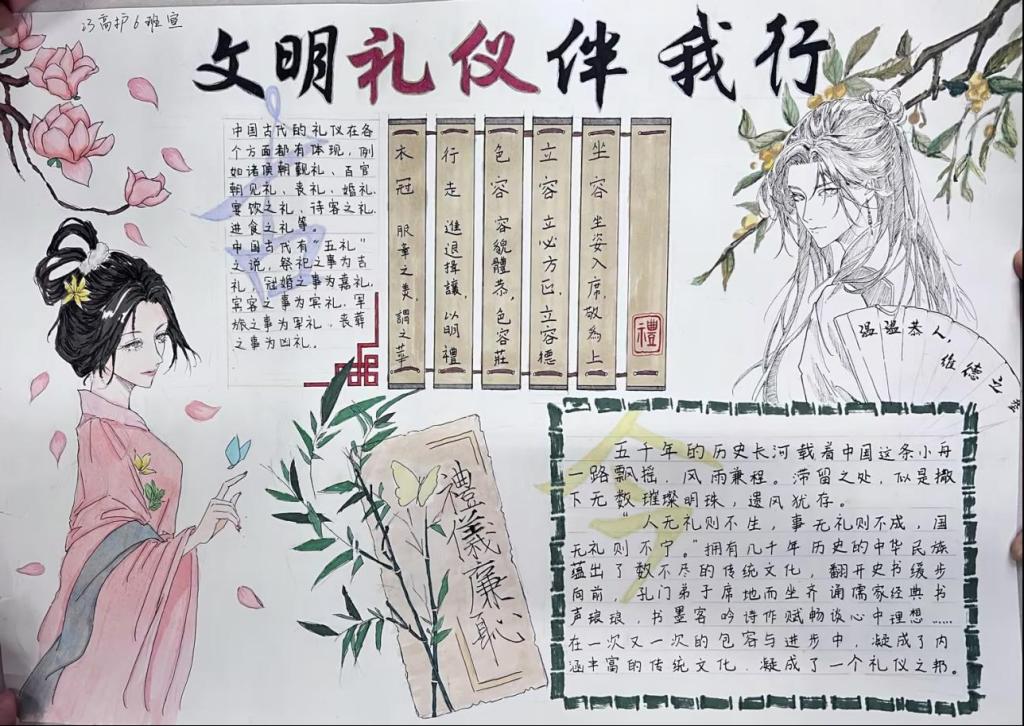 高护6班宣
文明礼仪伴我行
中国古代的礼仪在各
个方面都有体现，例
如诸侯朝觐礼、百官
朝见礼、丧礼、婚礼、
宴饮之礼、待客之礼、
进食之礼等。
中国古代有“五礼”
之说，祭祀之事为吉
礼，冠婚之事为嘉礼，
宾客之事为宾礼，军
旅之事为军礼，丧葬
之事为凶礼。
衣冠 服章之美，謂之華
行走 進退揖讓，以明禮
色容 容貌體恭，色容莊
立容 立必方正，立容德
坐容 坐姿入席，敬為上
禮
温温恭人，
维德之
禮儀廉恥
古
今
五千年的历史长河载着中国这条小舟
一路飘摇，风雨兼程。滞留之处，似是撒
下无数璀璨明珠，遗风犹存。
“人无礼则不生，事无礼则不成，国
无礼则不宁。”拥有几千年历史的中华民族
蕴出了数不尽的传统文化，翻开史书缓步
向前，孔门弟子席地而坐齐诵儒家经典书
声琅琅，书墨客吟诗作赋畅谈心中理想……
在一次又一次的包容与进步中，凝成了内
涵丰富的传统文化，凝成了一个礼仪之邦。